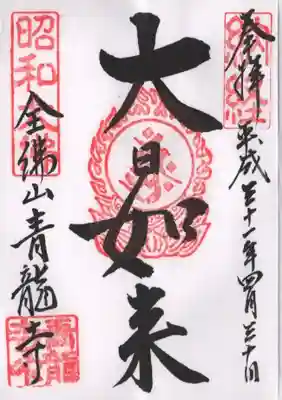 奉拝
平成三十一年四月三十日
大日如来
全佛山青龍寺
昭和大佛